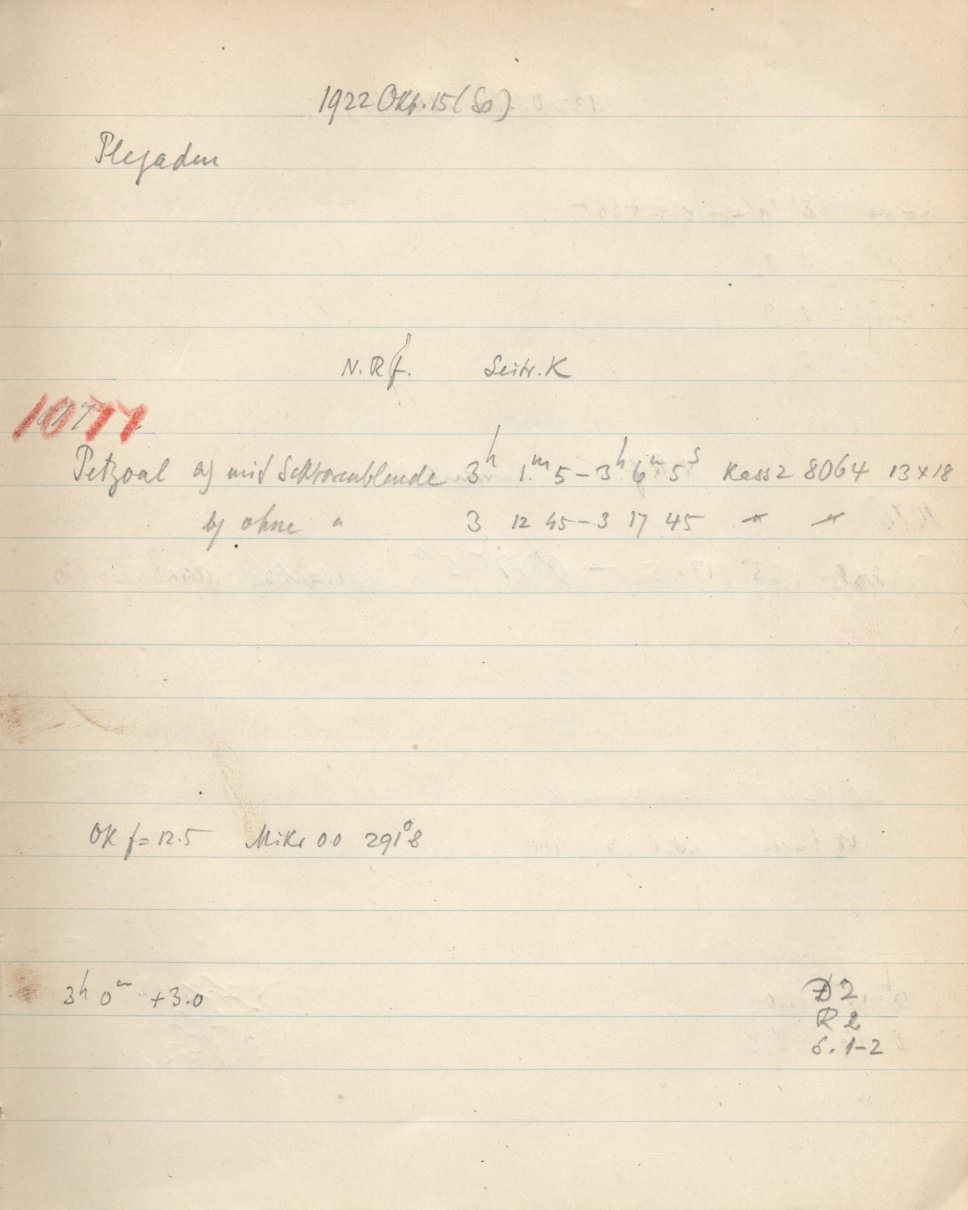 1922 Okt. 15 (So)
Plejaden
N.Rf. Seitr. K
1077
Petzval a) mit Sektorenblende 3h 1.m 5 – 3h 6m 5s Kass 2 8064 13x18
b) ohne " 3 12 45 – 3 17 45 " "
OK f = 12.5 Mikr 00 291°8
3h 0m +3.0
D 2
R 2
S. 1–2